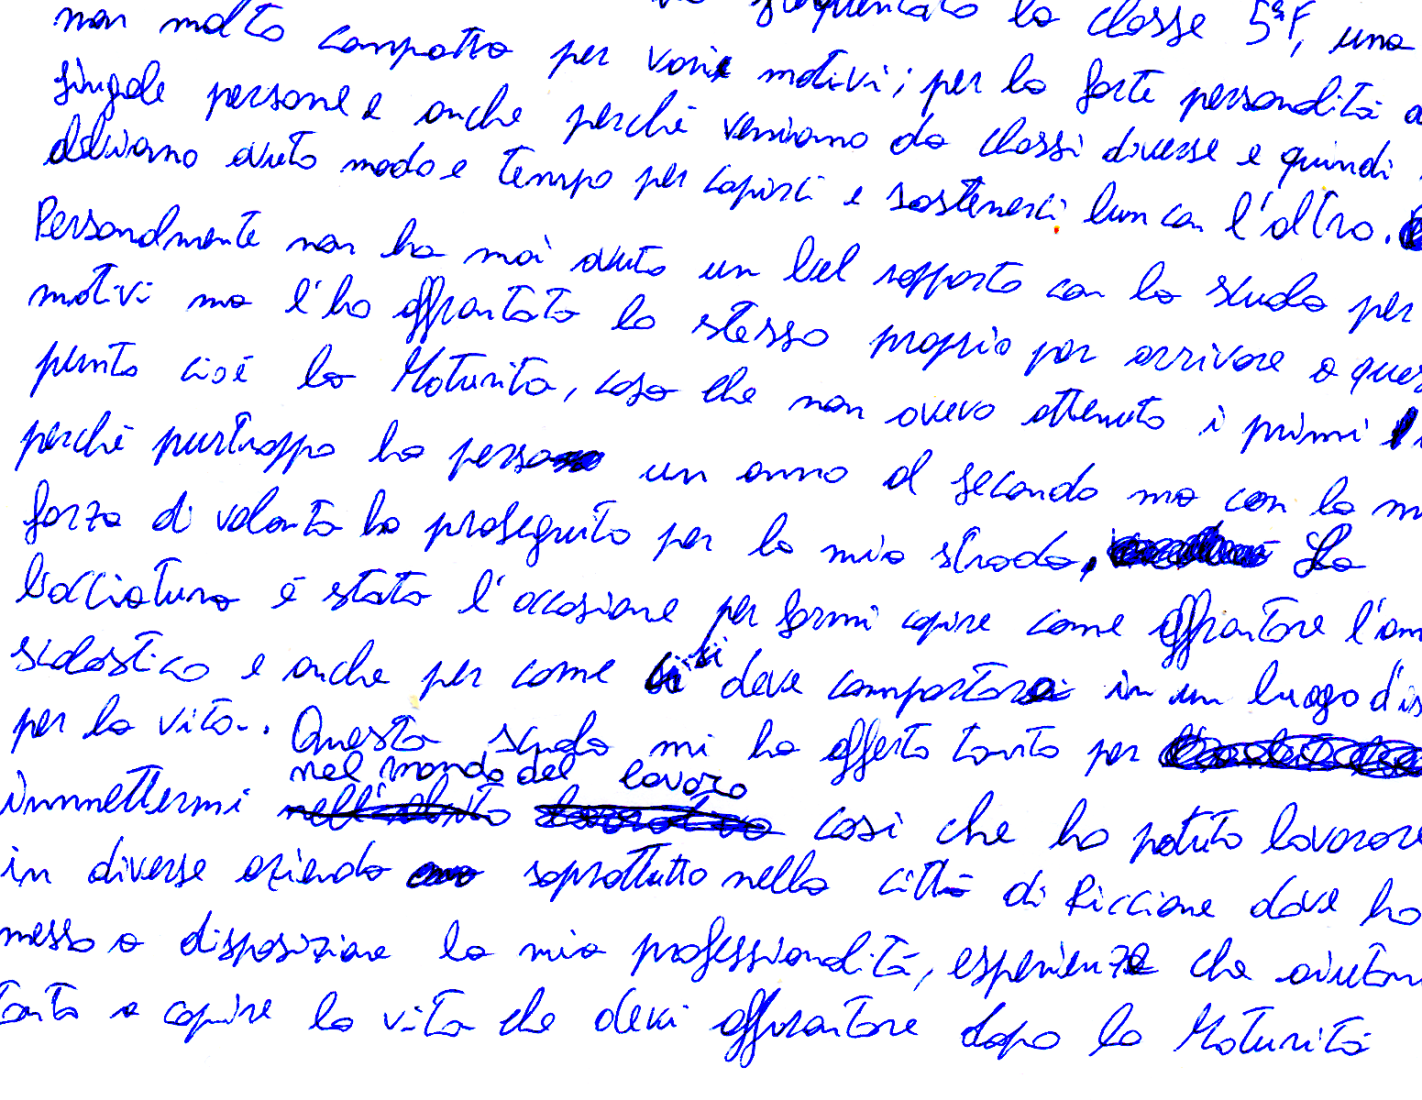 frequentato la classe 5ªF, una
non molto compatta per varie motivi; per la forte personalità
singole persone e anche perchè venivamo da classi diverse e quindi
dovevamo avuto modo e tempo per capirci e sostenerci lun con l'altro.
Personalmente non ho mai avuto un bel rapporto con la scuola per
motivi ma l'ho affrontata lo stesso proprio per arrivare a ques
punto cioè la Maturità, cosa che non avevo ottenuto i primi
perchè purtroppo ho perso un anno al secondo ma con la m
forza di volontà ho proseguito per la mia strada, La
bocciatura è stata l'occasione per farmi capire come affrontare l'an
scolastico e anche per come si deve comportare in un luogo d'is
per la vita. Questa scuola mi ha offerto tanto per
nel mondo del lavoro
immettermi così che ho potuto lavorare
in diverse aziende soprattutto nella città di Riccione dove ho
messo a disposizione la mia professionalità, esperienze che aiutan
tanto a capire la vita che devi affrontare dopo la Maturità